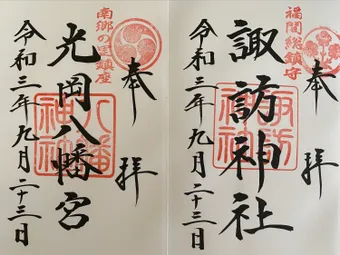 福間総鎮守
奉拝
諏訪神社
諏訪
神社
令和三年九月二十三日
南郷の里鎮座
奉拝
光岡八幡宮
八幡
令和三年九月二十三日